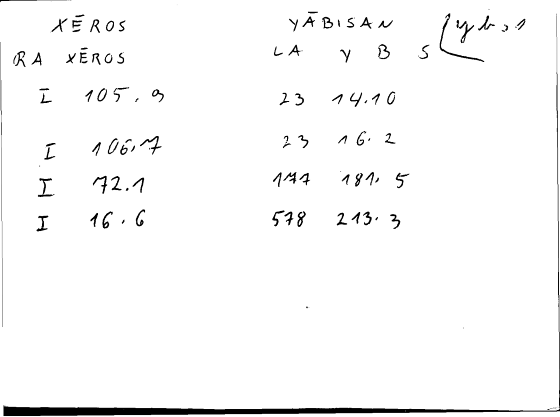 XĒROS YĀBISAN
RA XĒROS LA Y B S
I 105.9 23 14.10
I 106.7 23 16.2
I 72.1 177 181.5
I 16.6 578 213.3